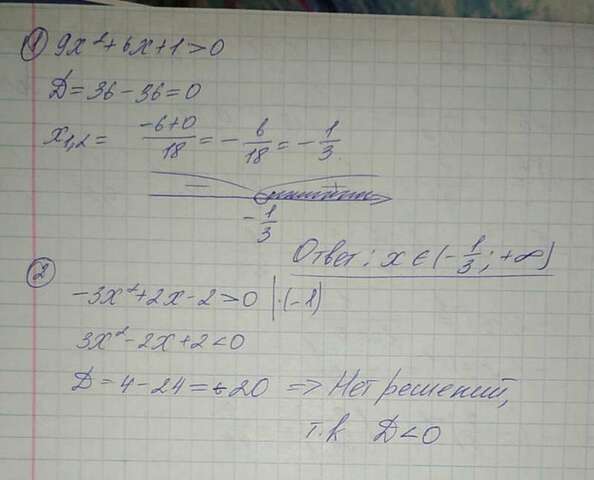 1 9x²+6x+1>0
D=36-36=0
x₁,₂= (-6+0)/18 = -6/18 = -1/3
— +
-1/3
Ответ: x∈(-1/3; +∞)
2
-3x²+2x-2>0 |·(-1)
3x²-2x+2<0
D=4-24=-20 => Нет решений,
т.к D<0